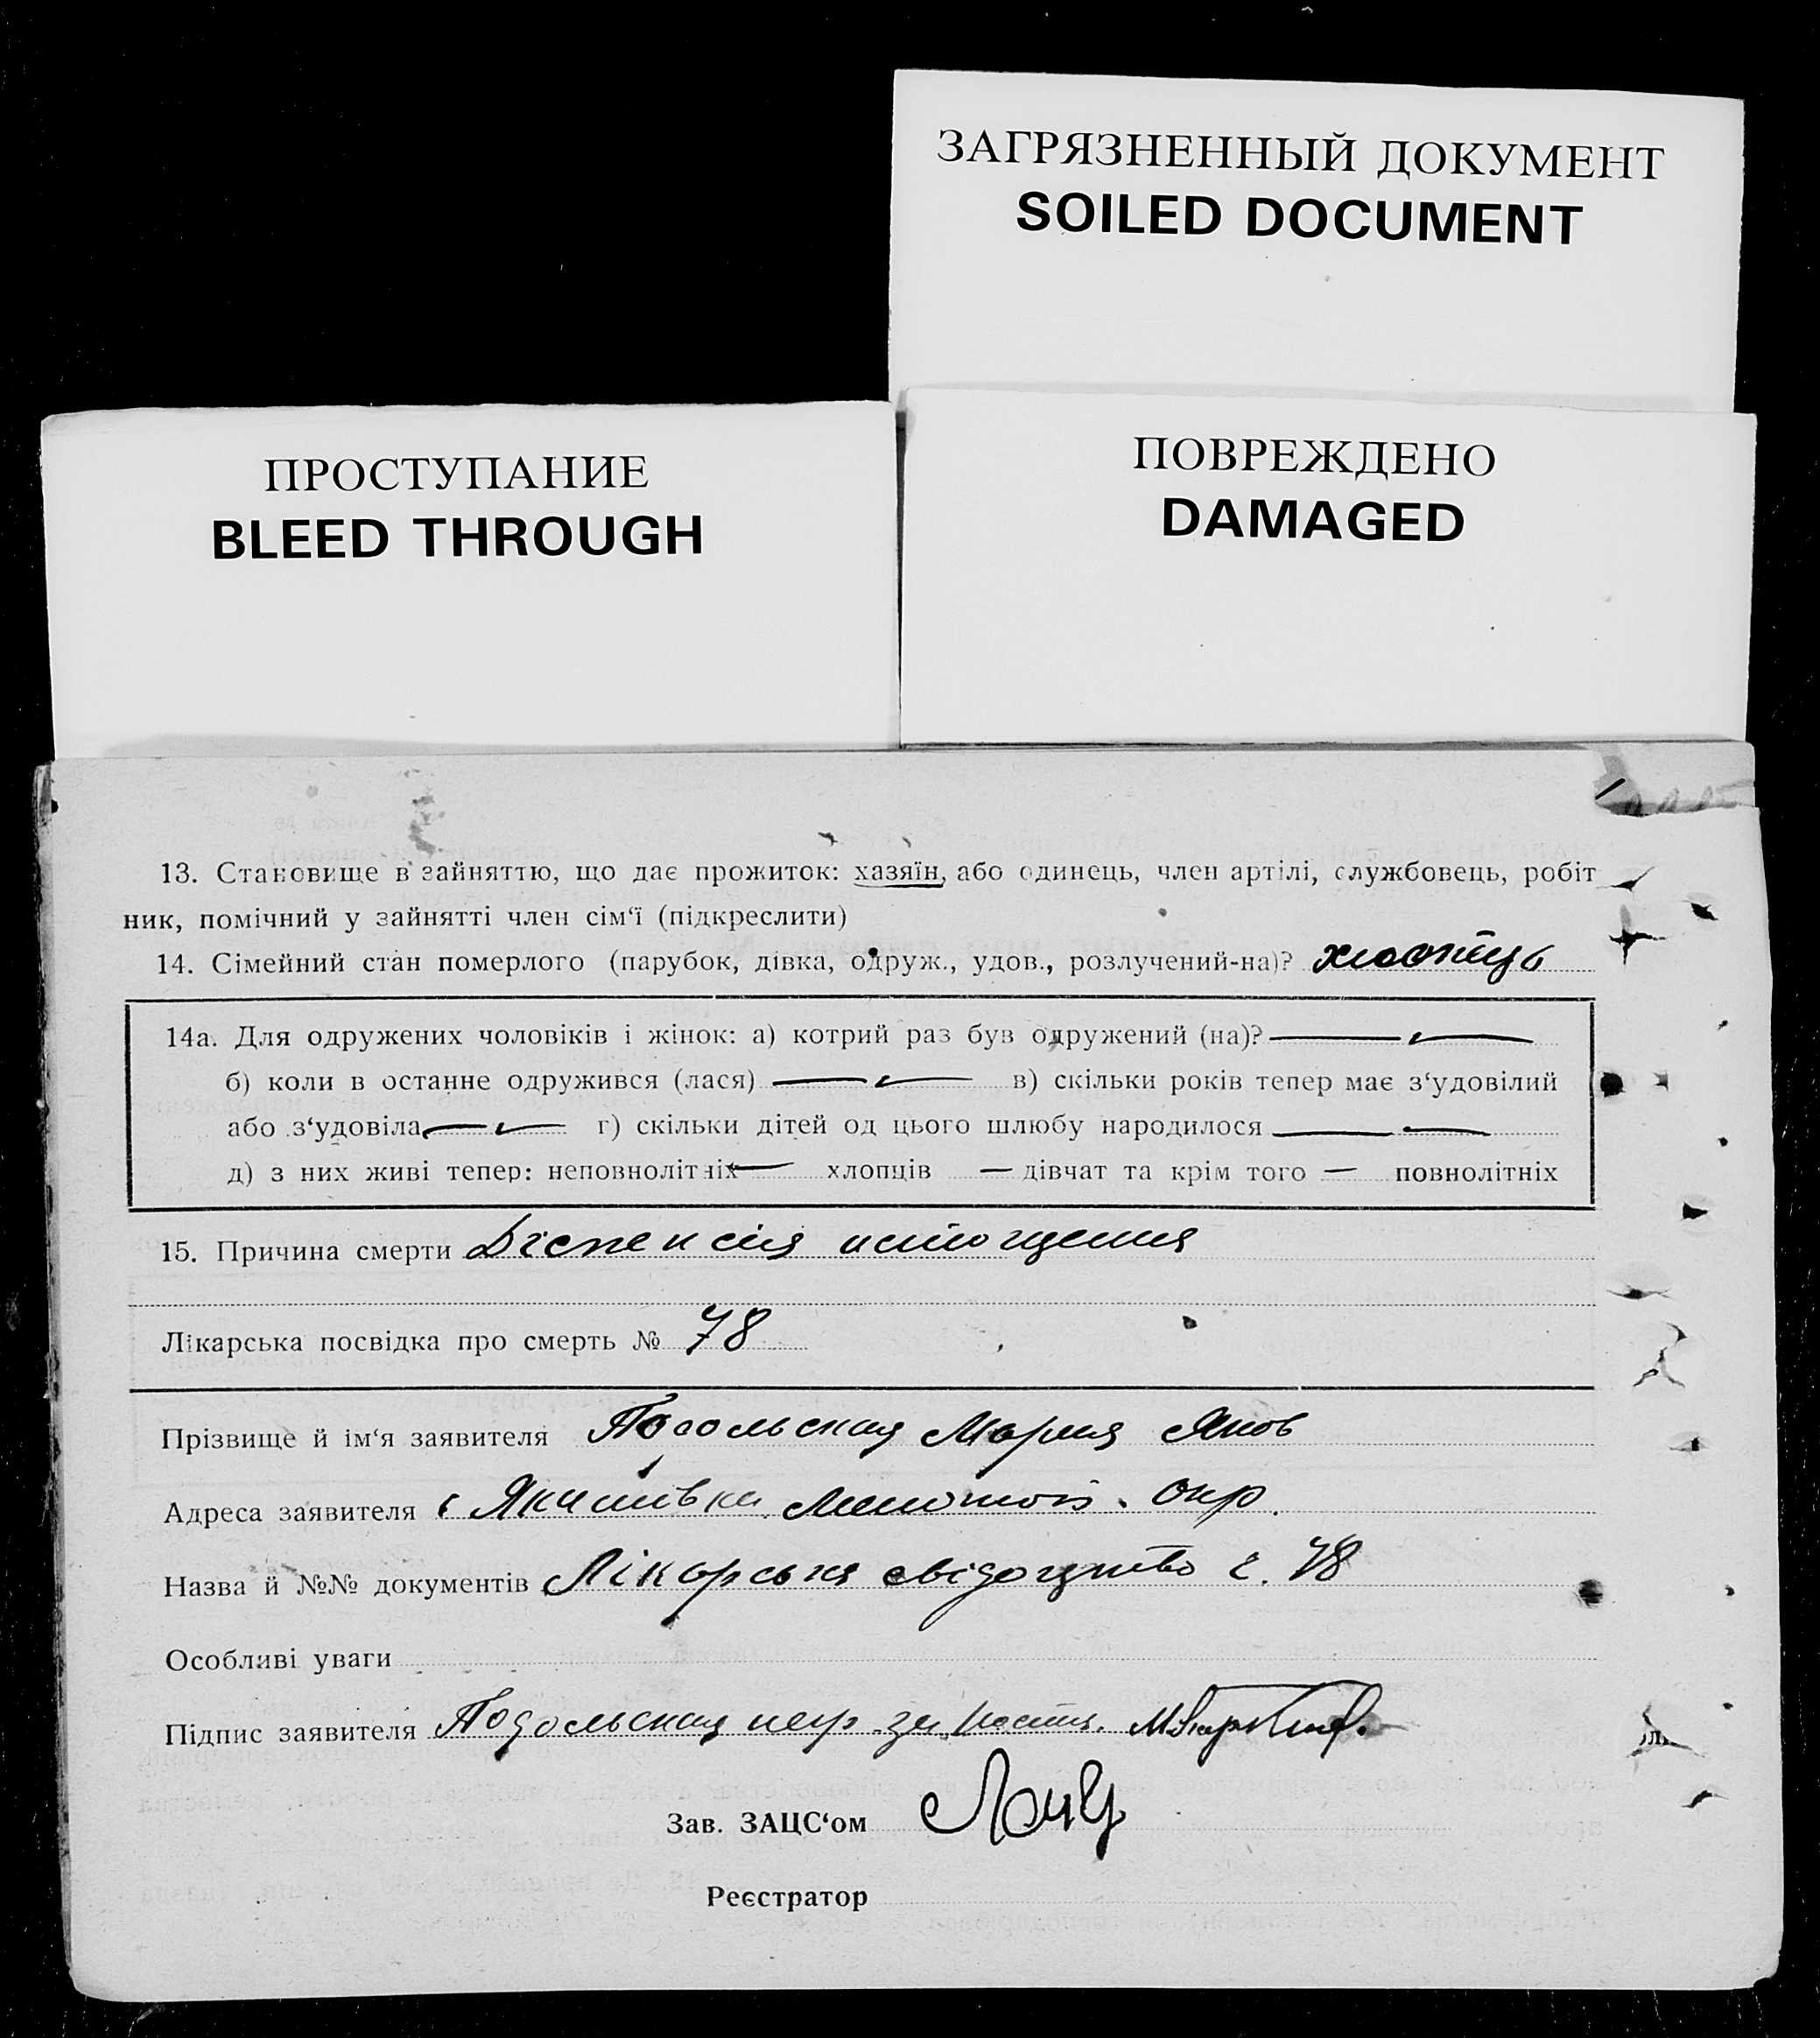 ЗАГРЯЗНЕННЫЙ ДОКУМЕНТ
SOILED DOCUMENT
ПРОСТУПАНИЕ
BLEED THROUGH
ПОВРЕЖДЕНО
DAMAGED
13. Становище в зайняттю, що дає прожиток: хазяїн, або одинець, член артілі, службовець, робіт
ник, помічний у зайнятті член сім‘ї (підкреслити)
14. Сімейний стан померлого (парубок, дівка, одруж., удов., розлучений-на)? хлопець
14а. Для одружених чоловіків і жінок: а) котрий раз був одружений (на)? —
б) коли в останне одружився (лася) — в) скільки років тепер має з‘удовілий
або з‘удовіла — г) скільки дітей од цього шлюбу народилося —
д) з них живі тепер: неповнолітніх — хлопців — дівчат та крім того — повнолітніх
15. Причина смерти Діспепсія истощения
Лікарська посвідка про смерть № 78
Прізвище й ім‘я заявителя Подольская Мария Яков
Адреса заявителя с Якимівка Мелітоп. окр.
Назва й №№ документів Лікарське свідоцтво с. 78
Особливі уваги
Підпис заявителя Подольская негр. за
Зав. ЗАЦС‘ом
Реєстратор